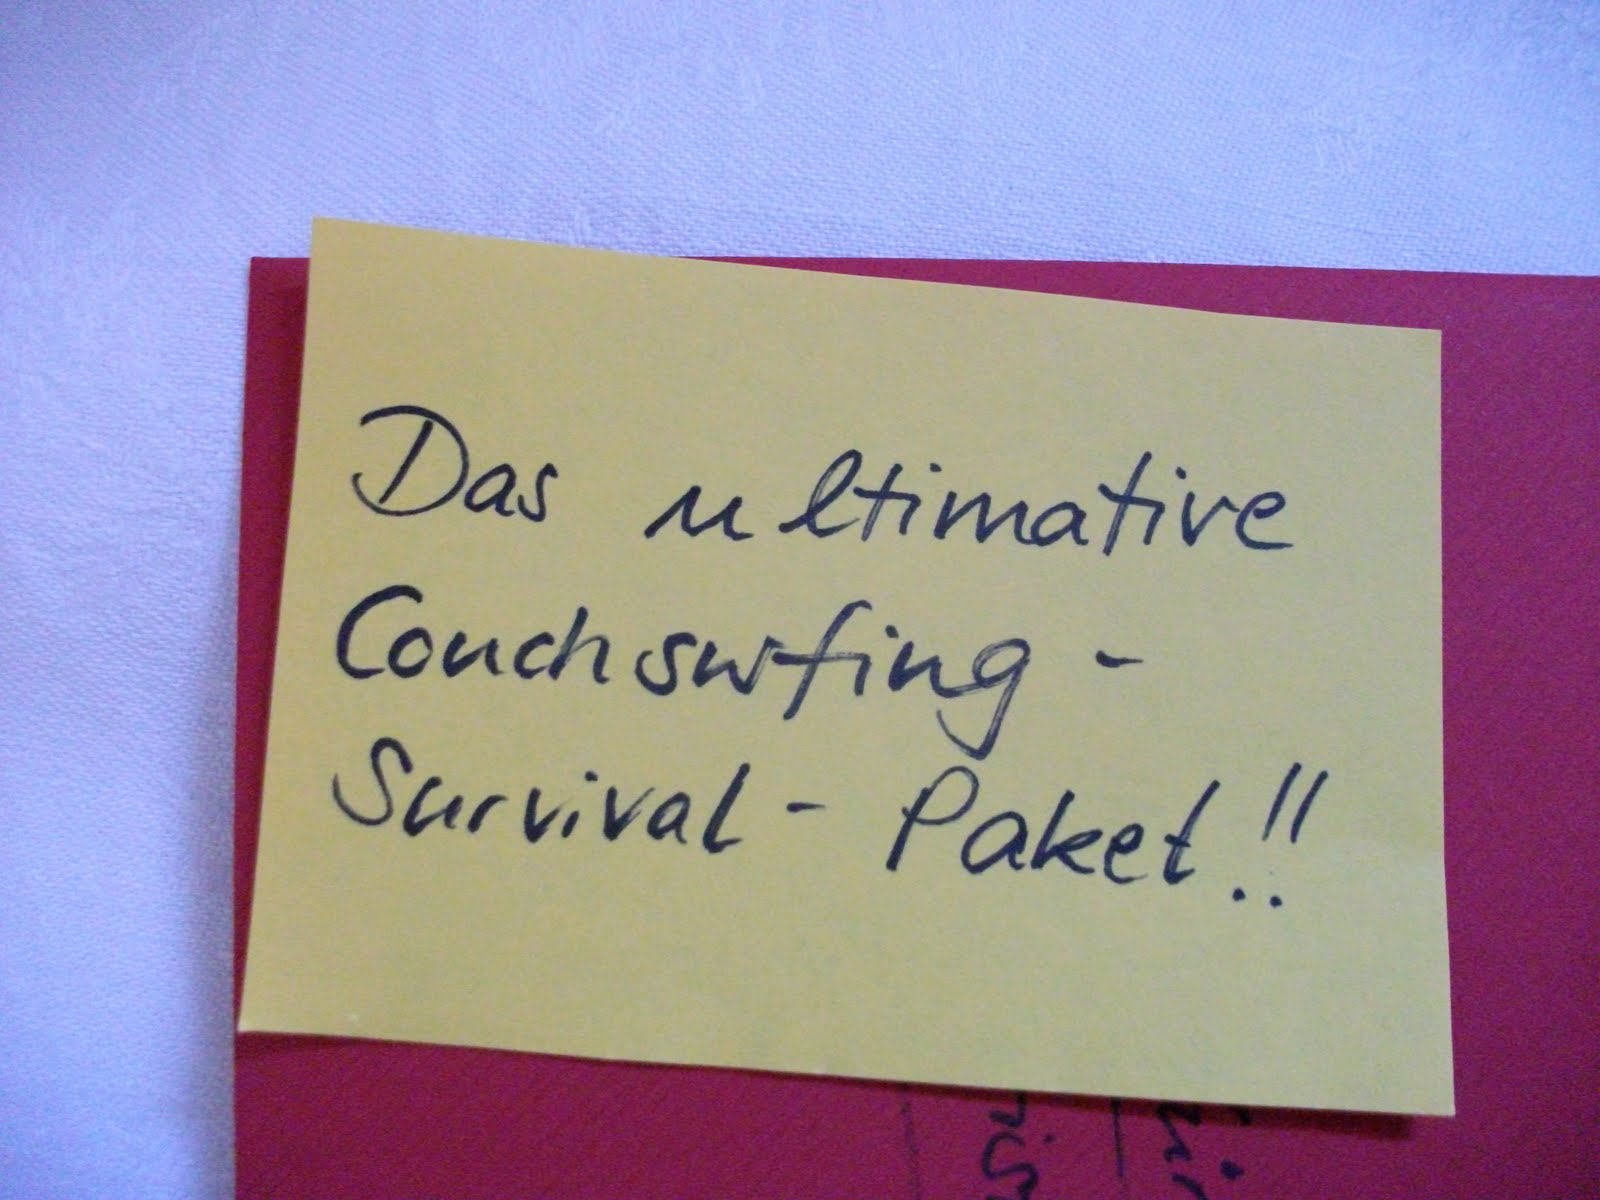 Das ultimative
Couchsurfing-
Survival-Paket!!